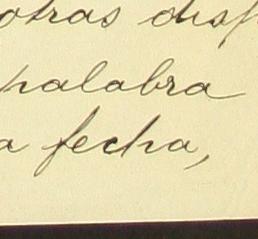 otras disp
palabra
a fecha,